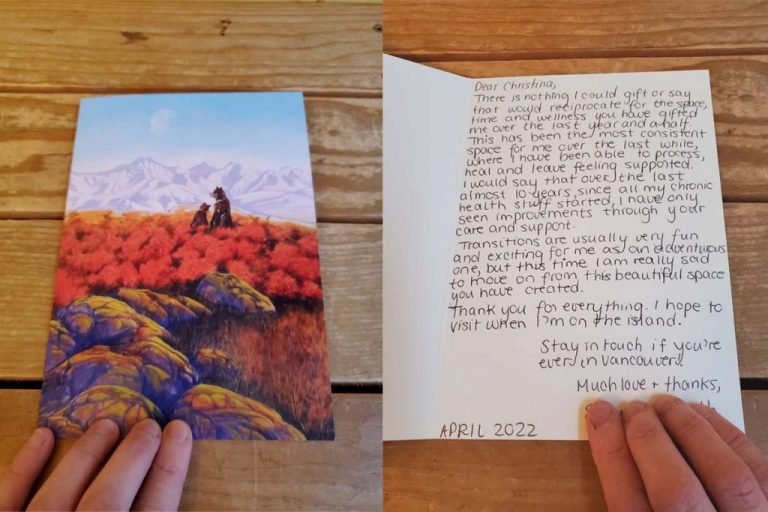 Dear Christina,
There is nothing I could gift or say
that would reciprocate for the space,
time and wellness you have gifted
me over the last year and a half.
This has been the most consistent
space for me over the last while,
where I have been able to process,
heal and leave feeling supported.
I would say that over the last
almost 10 years, since all my chronic
health stuff started, I have only
seen improvements through your
care and support.
Transitions are usually very fun
and exciting for me as an adventurous
one, but this time I am really sad
to move on from this beautiful space
you have created.
Thank you for everything. I hope to
visit when I'm on the island.
Stay in touch if you're
ever in Vancouver!
Much love + thanks,
APRIL 2022